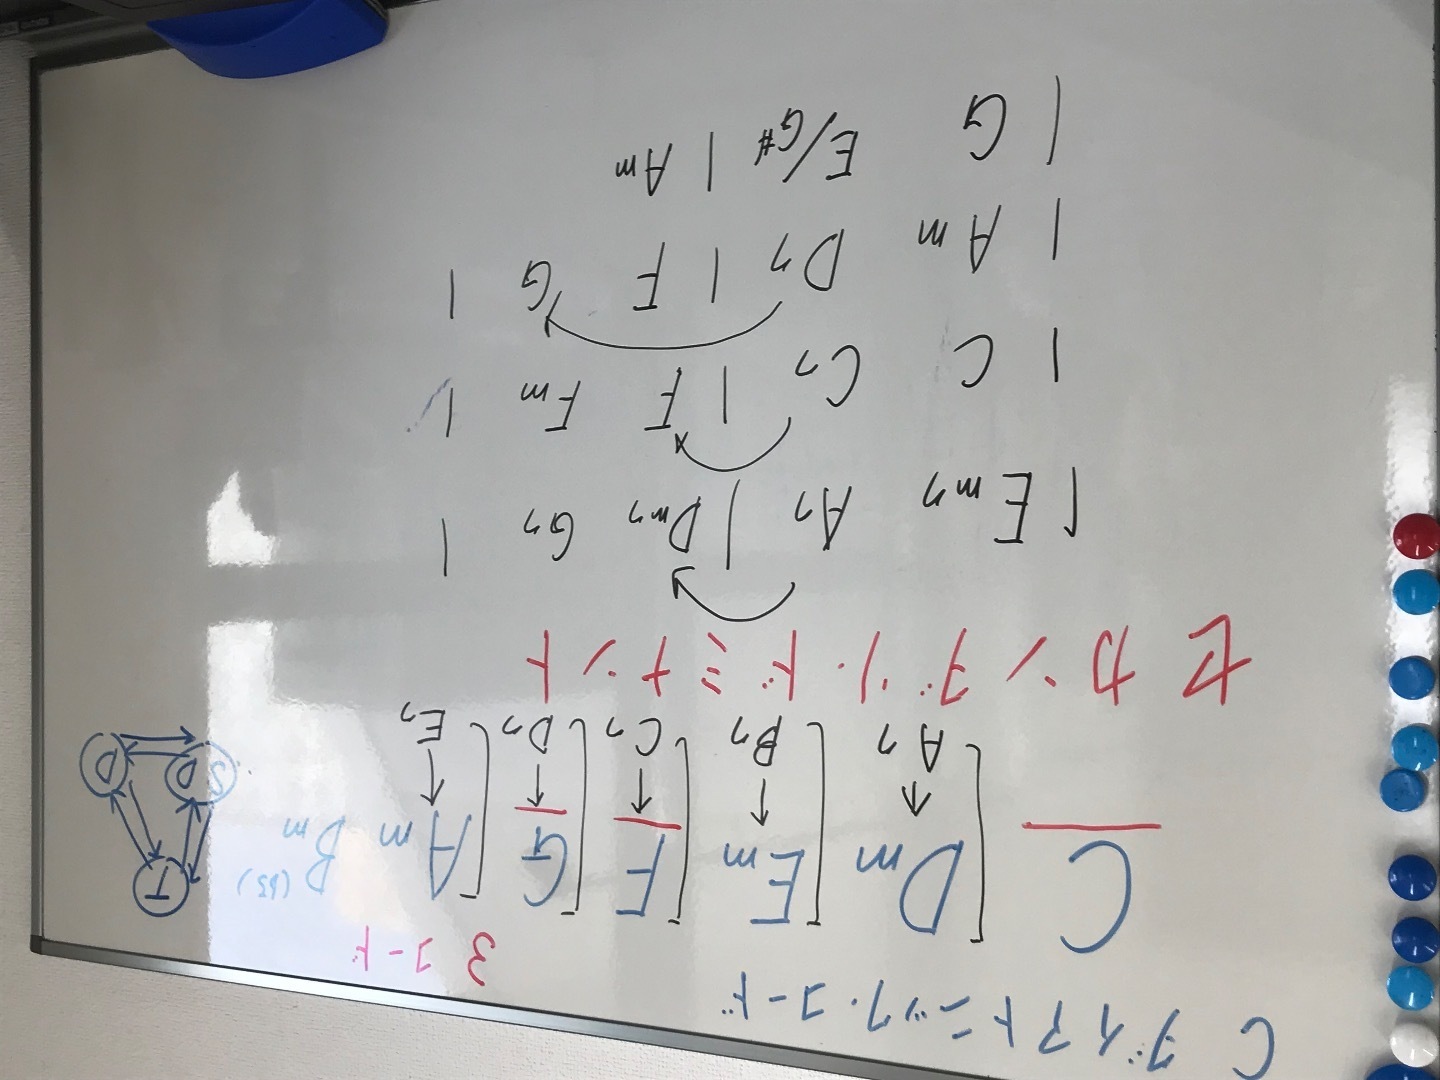 C ダイアトニック・コード
3 コード
C Dm Em F G Am Bm(b5) Bm
A7 B7 C7 D7 E7
T
SD D
セカンダリ・ドミナント
| Em7 A7 | Dm7 G7 |
| C C7 | F Fm |
| Am D7 | F G |
| G E/G# | Am